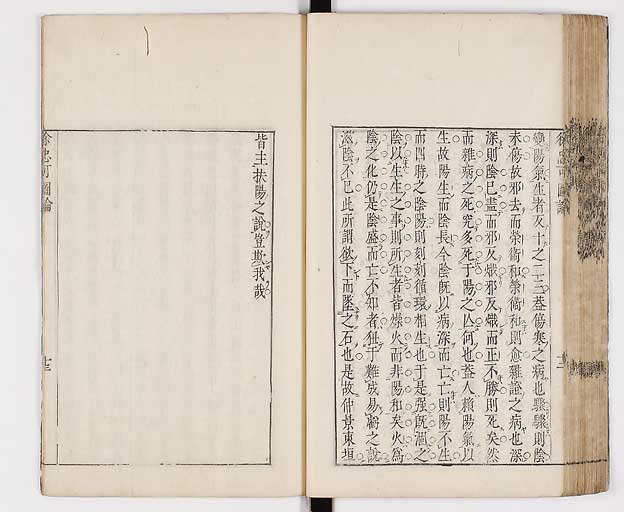 變陽氣生者反十之二三葢傷寒之病也驟驟則陰
未傷故邪去而榮衛和榮衛和則愈雜證之病也深
深則陰已盡而邪反熾邪反熾而正不勝則死矣然
而雜病之死究多死于陽之亾何也葢人賴陽氣以
生故陽生而陰長今陰既以病深而亡亡則陽不生
而四時之陰陽則刻刻循環相生也于是强既涸之
陰以生生之事則所生者皆燥火而非陽和矣火爲
陰之化仍是陰盛而亡不知者狃于難成易虧之說
滋陰不已此所謂欲下而墜之石也是故仲景東垣
皆主扶陽之說豈欺我哉
徐忠可圖論
十三